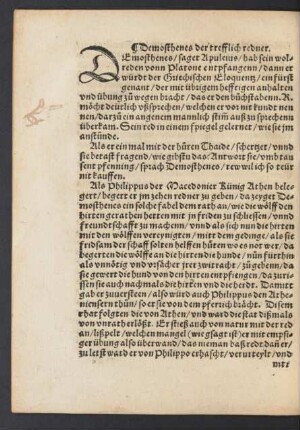 ¶Demosthenes der trefflich redner.
DEmosthenes / saget Apuleius / hab sein wol
reden vonn Platone entpfangenn / dann er
würdt der Griechischen Eloquentz / ein fürst
genant / der mit übigem hefftigen anhalten
vnd übung zů wegen bracht / das er den bůchstabenn. R.
möcht deütlich vßsprechen / welchen er vor nit kundt nen
nen / darzů ein angenem mannlich stim auß zů sprechenn
überkam. Sein red in einem spiegel gelernet / wie sy jm
anstünde.
Als er ein mal mit der hůren Thaide / schertzet / vnnd
sie betast fragend / wie gibstu das: Antwort sie / vmb tau
sent pfenning / sprach Demosthenes / rew wil ich so teür
nit kauffen.
Als Philippus der Macedonier Künig Athen beleg
gert / begert er jm zehen redner zů geben / da zeyget De
mosthenes ein solche fabel dem rath an / wie die wölff den
hirten gerathen hetten mit jn friden zů schliessen / vnnd
freundtschafft zů machenn / vnnd als sich nun die hirten
mit den wölffen vereynigten / mit dem gedinge / als sie
fridsam der schaff solten helffen hüten wo es not wer / da
begerten die wölffe an die hirten die hunde / nün fürthin
als vnnötig vnd vrsächer jrer zwitracht / zůgebenn / da
sie gewert die hund von den hirten entpfiengen / da zuris
sen sie auch nachmals die hirten vnd die herdt. Damitt
gab er zůuersteen / also wird auch Philippus den Athe
niensern thůn / so er sie von dem pferlich brächt. Disem
rhat folgten die von Athen / vnd ward die stat dißmals
von vnrath erlößt. Er stieß auch von natur mit der red
an / lißpelt / welchen mangel (wie gsagt ist) er mit empsi
ger übung also überwand / das nieman baß redt dann er /
zů letst ward er von Philippo erhascht / verurteylt / vnd
mit